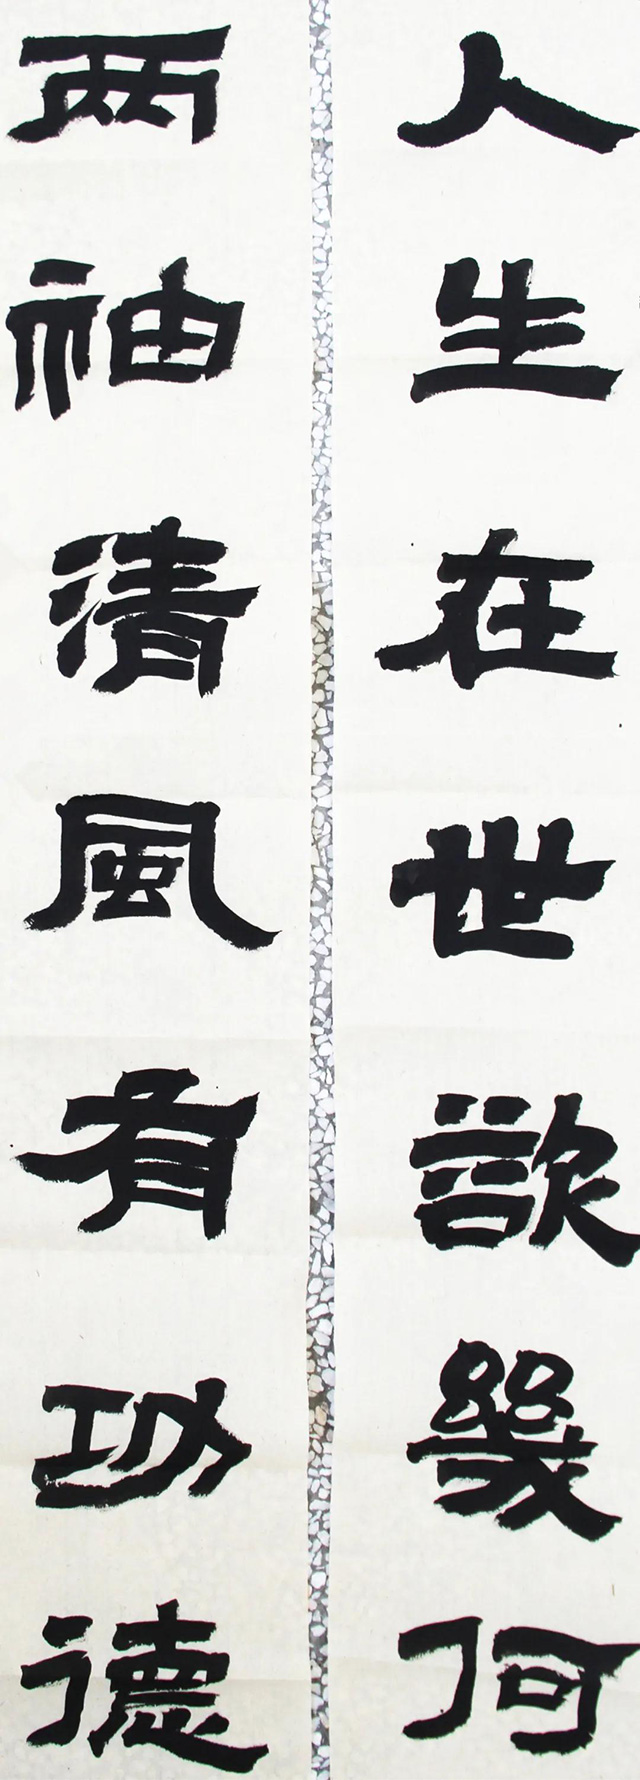 人生在世欲幾何
两袖清風有功德